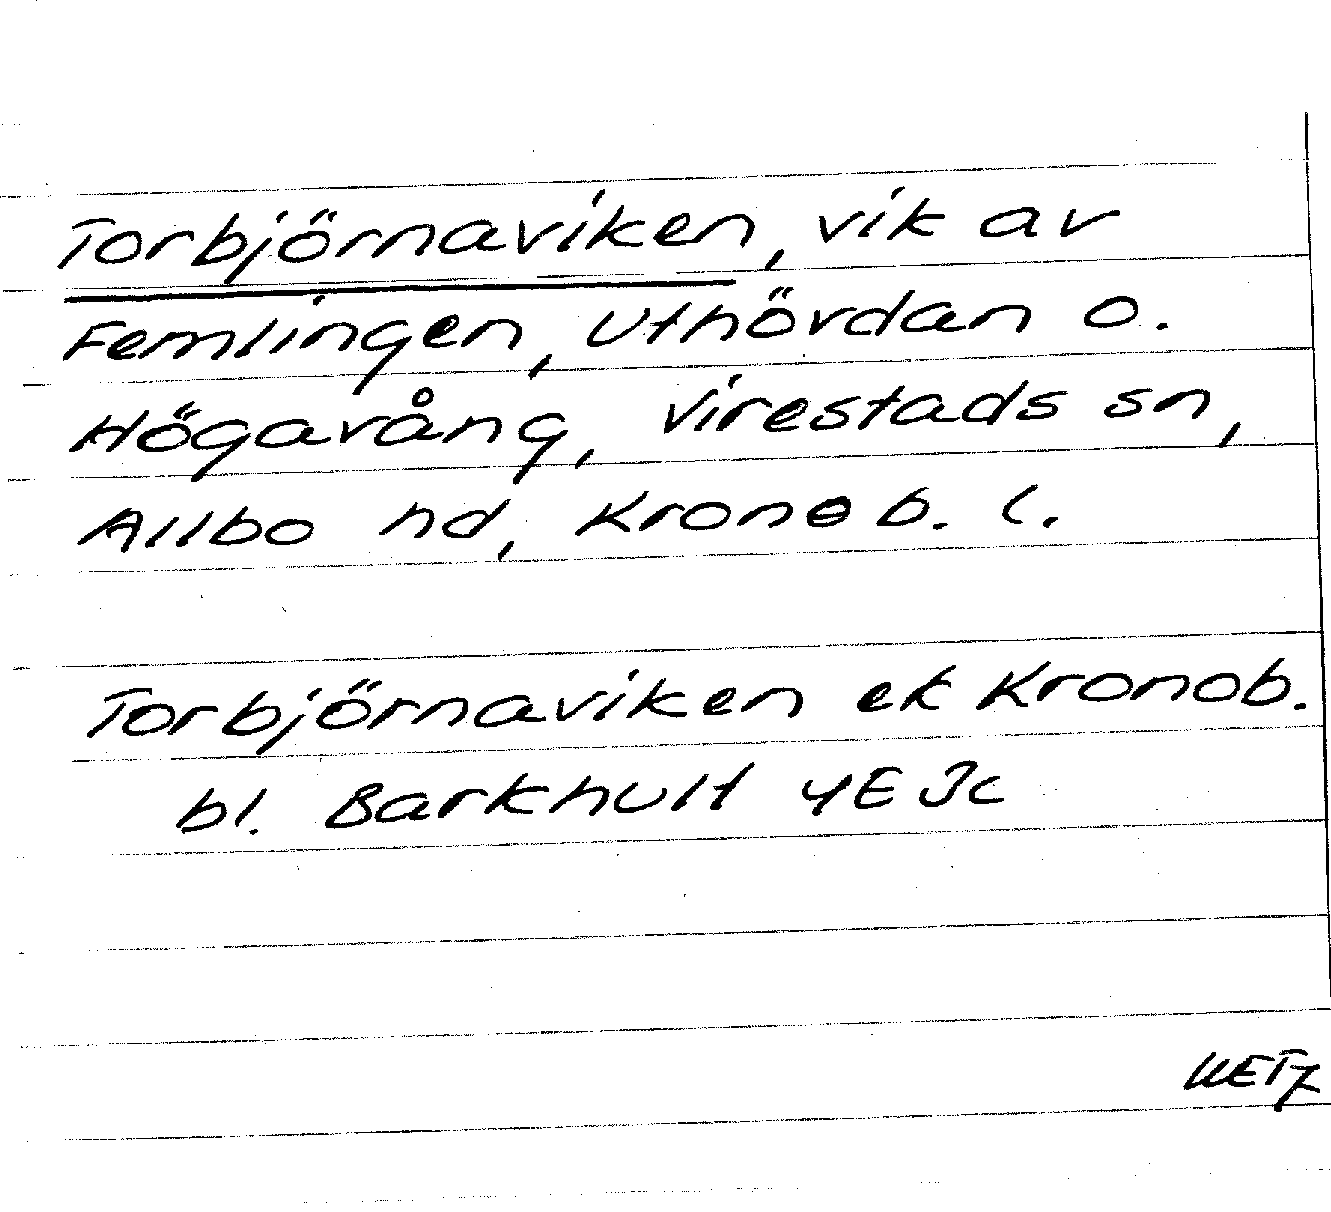 Torbjörnaviken, vik av
Femlingen, Uthövdan o.
Högavång, Virestads sn,
Allbo hd, Kronob. l.
Torbjörnaviken ek Kronob.
bl. Barkhult 4E Jc